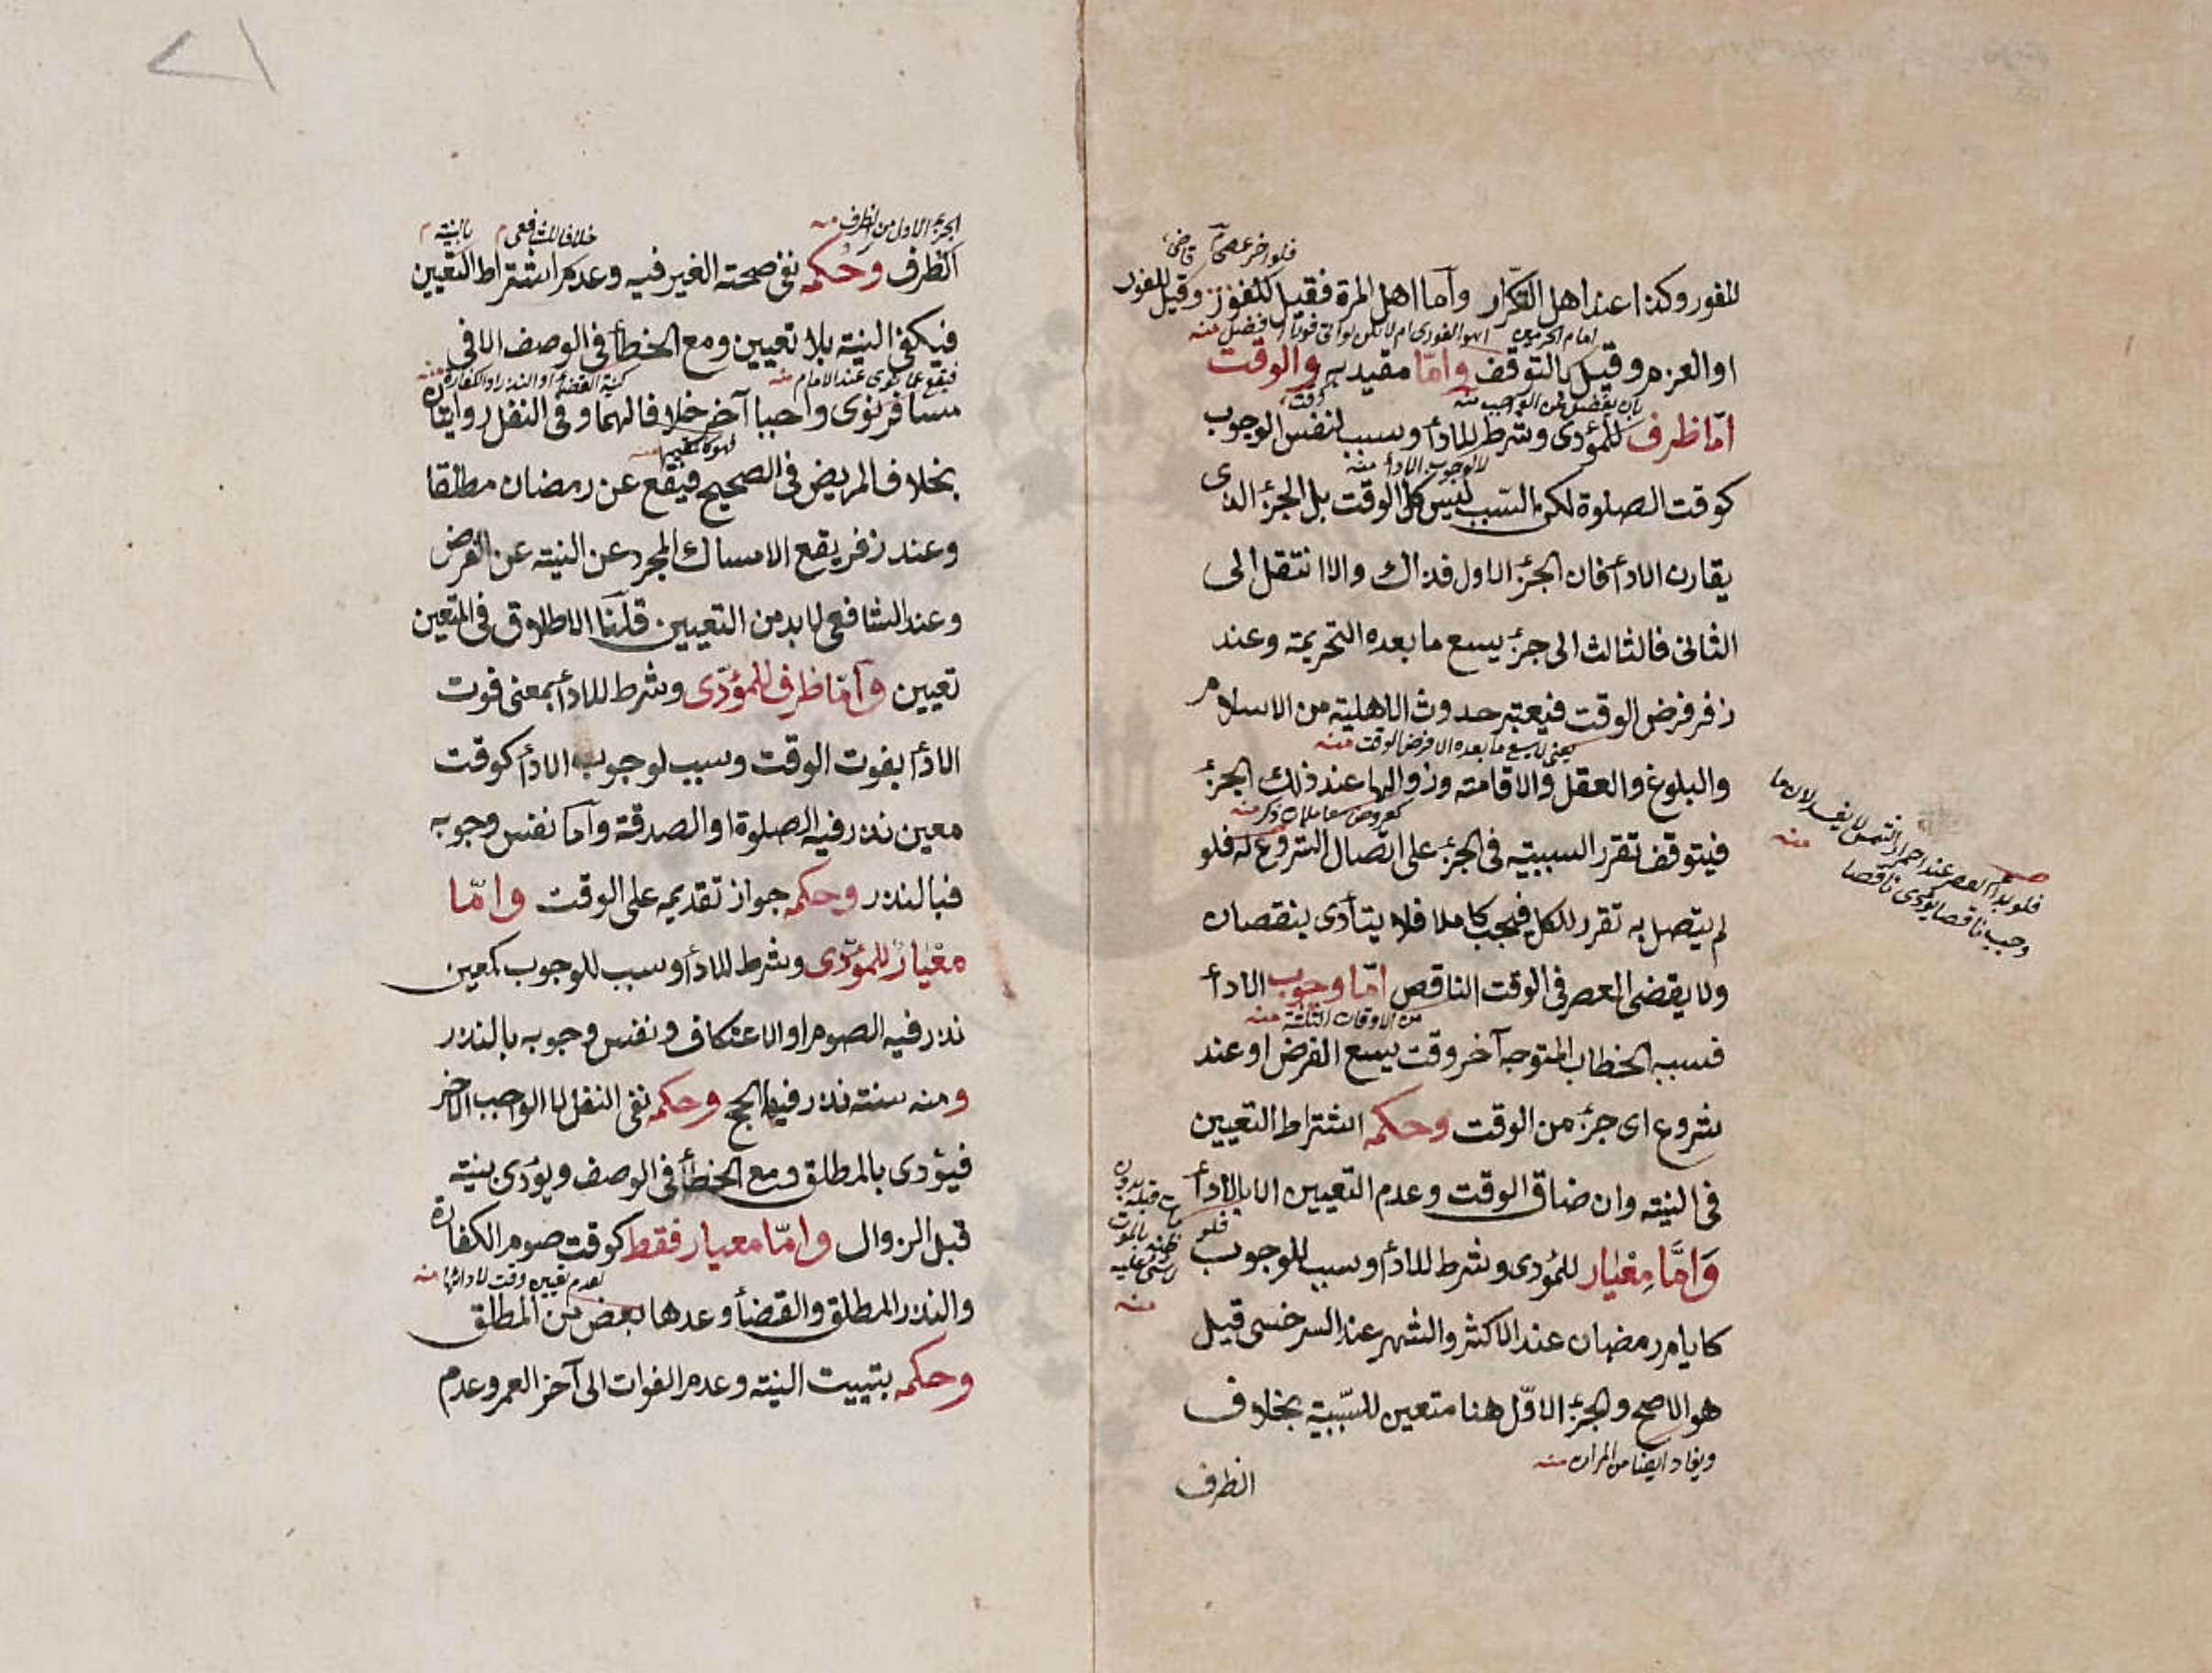 فلو اخر عصى قاضى
للفور وكذا عند اهل التكرار وأما اهل المرة فقيل للفور وقيل للفور
امام الحرمين
افضل منه
او العزم وقيل بالتوقف وامّا مقيد به والوقت
امّا ظرف للمؤدى وشرط للادأ وسبب لنفس الوجوب
لا لوجوب الادأ منه
كوقت الصلوة لكن السّبب ليس كل الوقت بل الجزء الذى
يقارن الادأ فان الجزء الاول فذاك والا انتقل الى
الثانى فالثالث الى جزء يسع ما بعده التحريمة وعند
زفر فرض الوقت فيعتبر حدوث الاهلية من الاسلام
يعنى لا يسع ما بعده الا فرض الوقت منه
والبلوغ والعقل والاقامة وزوالها عند ذلك الجزء
فيتوقف تقرر السببية فى الجزء على اتصال الشروع له فلو
لم يتصل به تقرر للكل فيجب كاملا فلا يتأدى بنقصان
ولا يقضى العصر فى الوقت الناقص امّا وجوب الادأ
من الاوقات الثلثة منه
فسببه الخطاب المتوجه آخر وقت يسع الفرض او عند
شروع اى جزء من الوقت وحكمه اشتراط التعيين
فى النية وان ضاق الوقت وعدم التعيين الا بالادأ
وَامَّا مِعْيَار للمؤدى وشرط للادأ وسبب للوجوب
كايام رمضان عند الاكثر والشهر عند السرخسى قيل
هو الاصح والجزء الاوّل هنا متعين للسّببية بخلاف
الظرف
فلو بدأ العصر عند احمرار الشمس لا يفسد لان ما
وجب ناقصا يؤدى ناقصا
منه
الجزء الاول من الظرف منه
خلافا للشافعى م
بالنية م
الظرف وحكمه نفى صحة الغير فيه وعدم اشتراط التعيين
فيكفى النية بلا تعيين ومع الخطأ فى الوصف الا فى
فيقع عما نوى عند الامام منه
كنية القضاء او النذر او الكفارة منه
مسافر نوى واجبا آخر خلافا لهما وفى النفل روايتان
بخلاف المريض فى الصحيح فيقع عن رمضان مطلقا
وعند زفر يقع الامساك المجرد عن النية عن الفرض
وعند الشافعى لا بد من التعيين قلنا الاطلاق فى المتعين
تعيين وأمّا ظرف للمؤدّى وشرط للادأ بمعنى فوت
الادأ بفوت الوقت وسبب لوجوب الادأ كوقت
معين نذر فيه الصلوة او الصدقة وأما نفس وجوبه
فبالنذر وحكمه جواز تقديمه على الوقت وامّا
معْيَارٌ للمؤدّى وشرط للادأ وسبب للوجوب كمعين
نذر فيه الصوم او الاعتكاف ونفس وجوبه بالنذر
ومنه سنة نذر فيها الحج وحكمه نفى النفل لا الواجب الاخر
فيؤدى بالمطلق ومع الخطأ فى الوصف ويؤدى بنية
قبل الزوال وامّا معيار فقط كوقت صوم الكفارة
لعدم تعيين وقت لادائها منه
والنذر المطلق والقضأ وعدها بعض من المطلق
وحكمه بتبييت النية وعدم الفوات الى آخر العمر وعدم